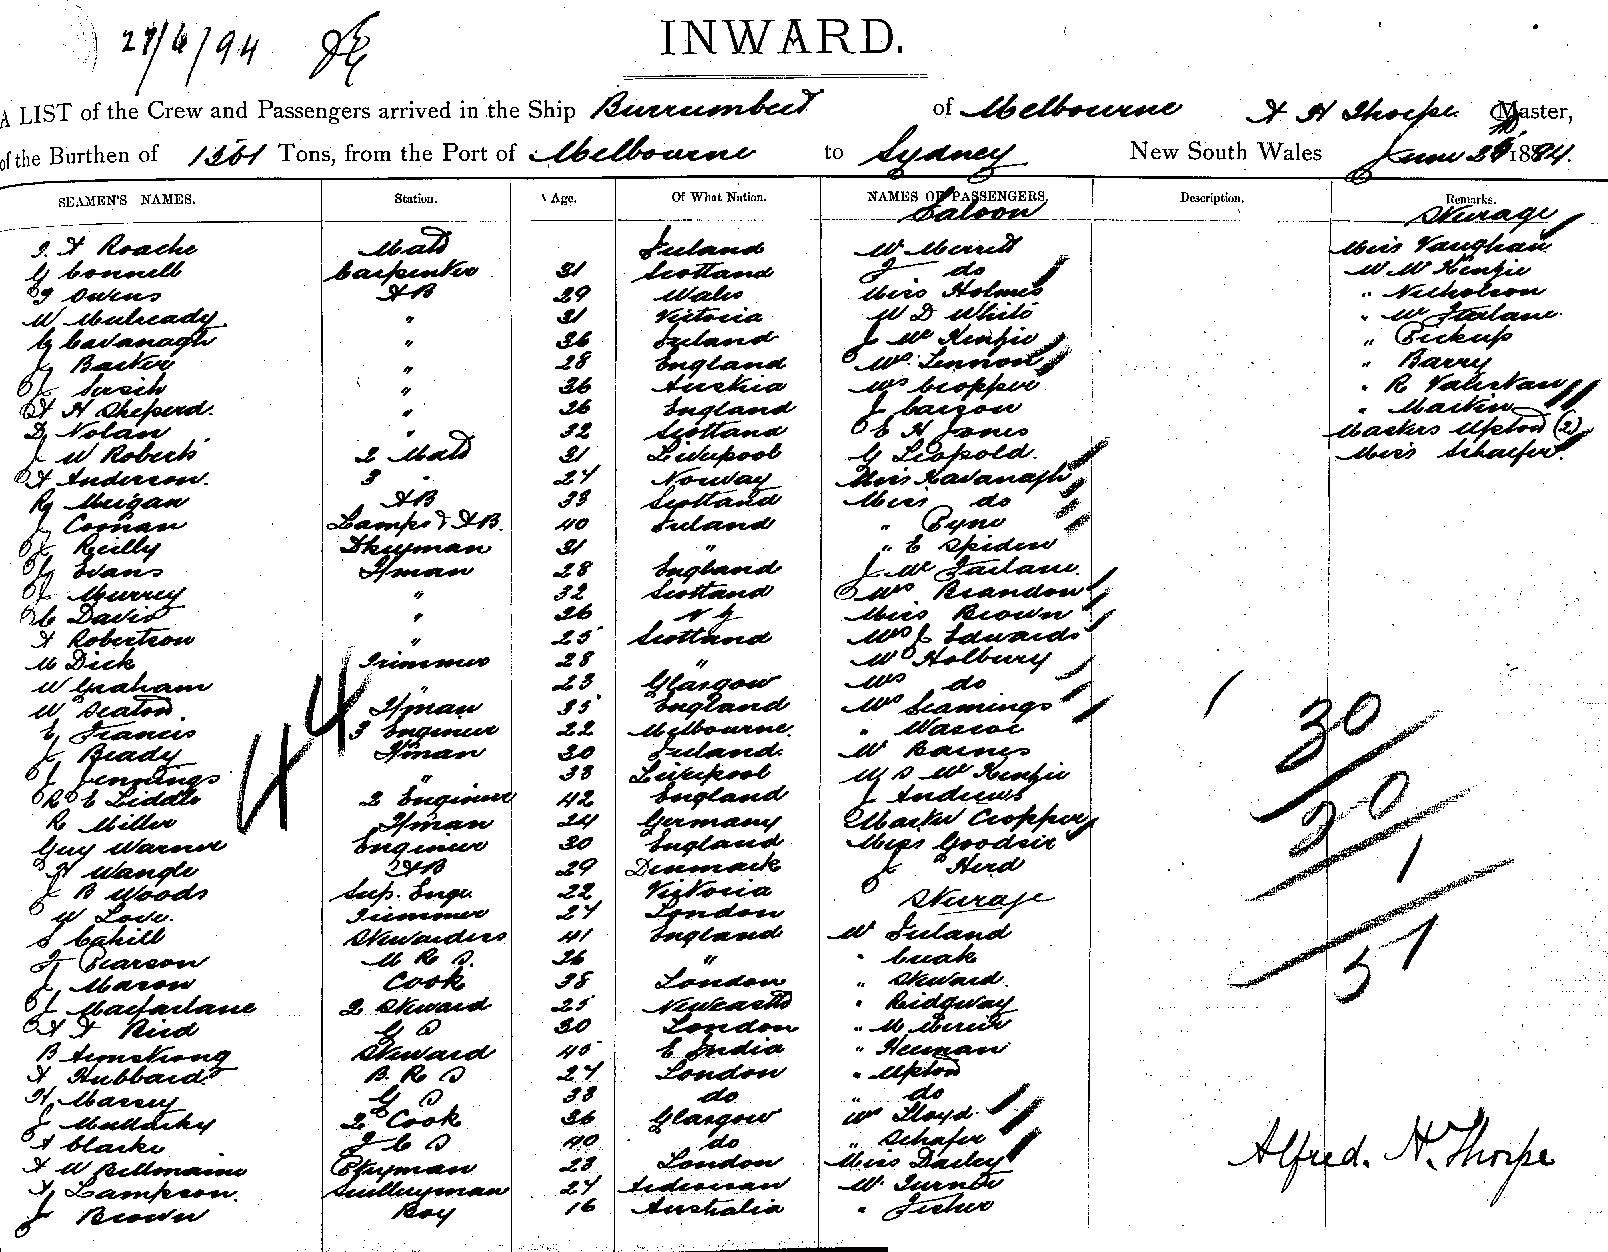 27/6/94
INWARD.
A LIST of the Crew and Passengers arrived in the Ship Burrumbeet of Melbourne A H Thorpe Master,
of the Burthen of Tons, from the Port of Melbourne to Sydney New South Wales June 18
SEAMEN'S NAMES. Station. Age. Of What Nation. NAMES OF PASSENGERS. Description. Remarks.
Saloon Steerage
Roache Mate Ireland W Merritt Miss Vaughan
G Connell Carpenter 31 Scotland J do W McKenzie
Owens AB 29 Wales Miss Holmes " Nicholson
W Mulready " 31 Victoria W D White "
G Cavanagh " 36 Ireland J McKenzie " Pickup
J Barker " 28 England Mrs Lennon " Barry
J " 36 Austria Mrs Cropper " R
A H Sheperd. " 26 England J " Martin
D Nolan " 32 Scotland E H Jones Masters Upton (2)
J W Roberts 2 Mate 31 Liverpool G Leopold. Miss Schaefer
A Anderson. 3 " 27 Norway Miss Kavanagh
R Meigan AB 33 Scotland Miss do
J Lamps & AB. 40 Ireland " Pyne
J Reilly Dkeyman 31 " " E Spiden
G Evans Fman 28 England J
J Murray " 32 Scotland Mrs Brandon
C Davis " 26 N Z Miss Brown
A Robertson " 25 Scotland Mrs J Edwards
M Dick Trimmer 28 " W Holbury
W Graham " 23 Glasgow Mrs do
W Seaton. Fman 35 England Mrs Seamings
E Francis 3 Engineer 22 Melbourne. "
J Fman 30 Ireland. W Barnes
J Jennings " 33 Liverpool McKenzie
R E Liddle 2 Engineer 42 England J Andrews
R Miller Fman 24 Germany Master Cropper
Guy Warner Engineer 30 England Miss Goodsir
H Wangle AB 29 Denmark J Herd
J B Woods Sup. Engr. 22 Victoria Steerage
W Love. Trimmer 27 London
S Cahill Stewardess 41 England W Ireland
Pearson M R S. 26 " " Cusak
J Mason Cook 38 London " Steward.
J Macfarlane 2 Steward 25 Newcastle " Ridgway
A A Bird G S 30 London " M
B Armstrong Steward 45 E India "
A Hubbard B. R S 27 London " Upton
H. Massey G S 33 do " do
J Mullarky 2 Cook 36 Glasgow Mr Lloyd
A Clarke S 40 do " Schafer
A W Bellmaine Pkeyman 23 London Miss Darley
Lampson. Sculleryman 27 W Turner
J Brown Boy 16 Australia " Fisher
44
30
20
1
51
Alfred. H. Thorpe